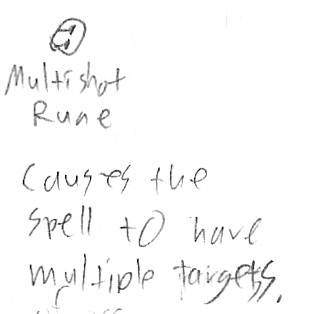 Multishot
Rune
Causes the
spell to have
multiple targets.